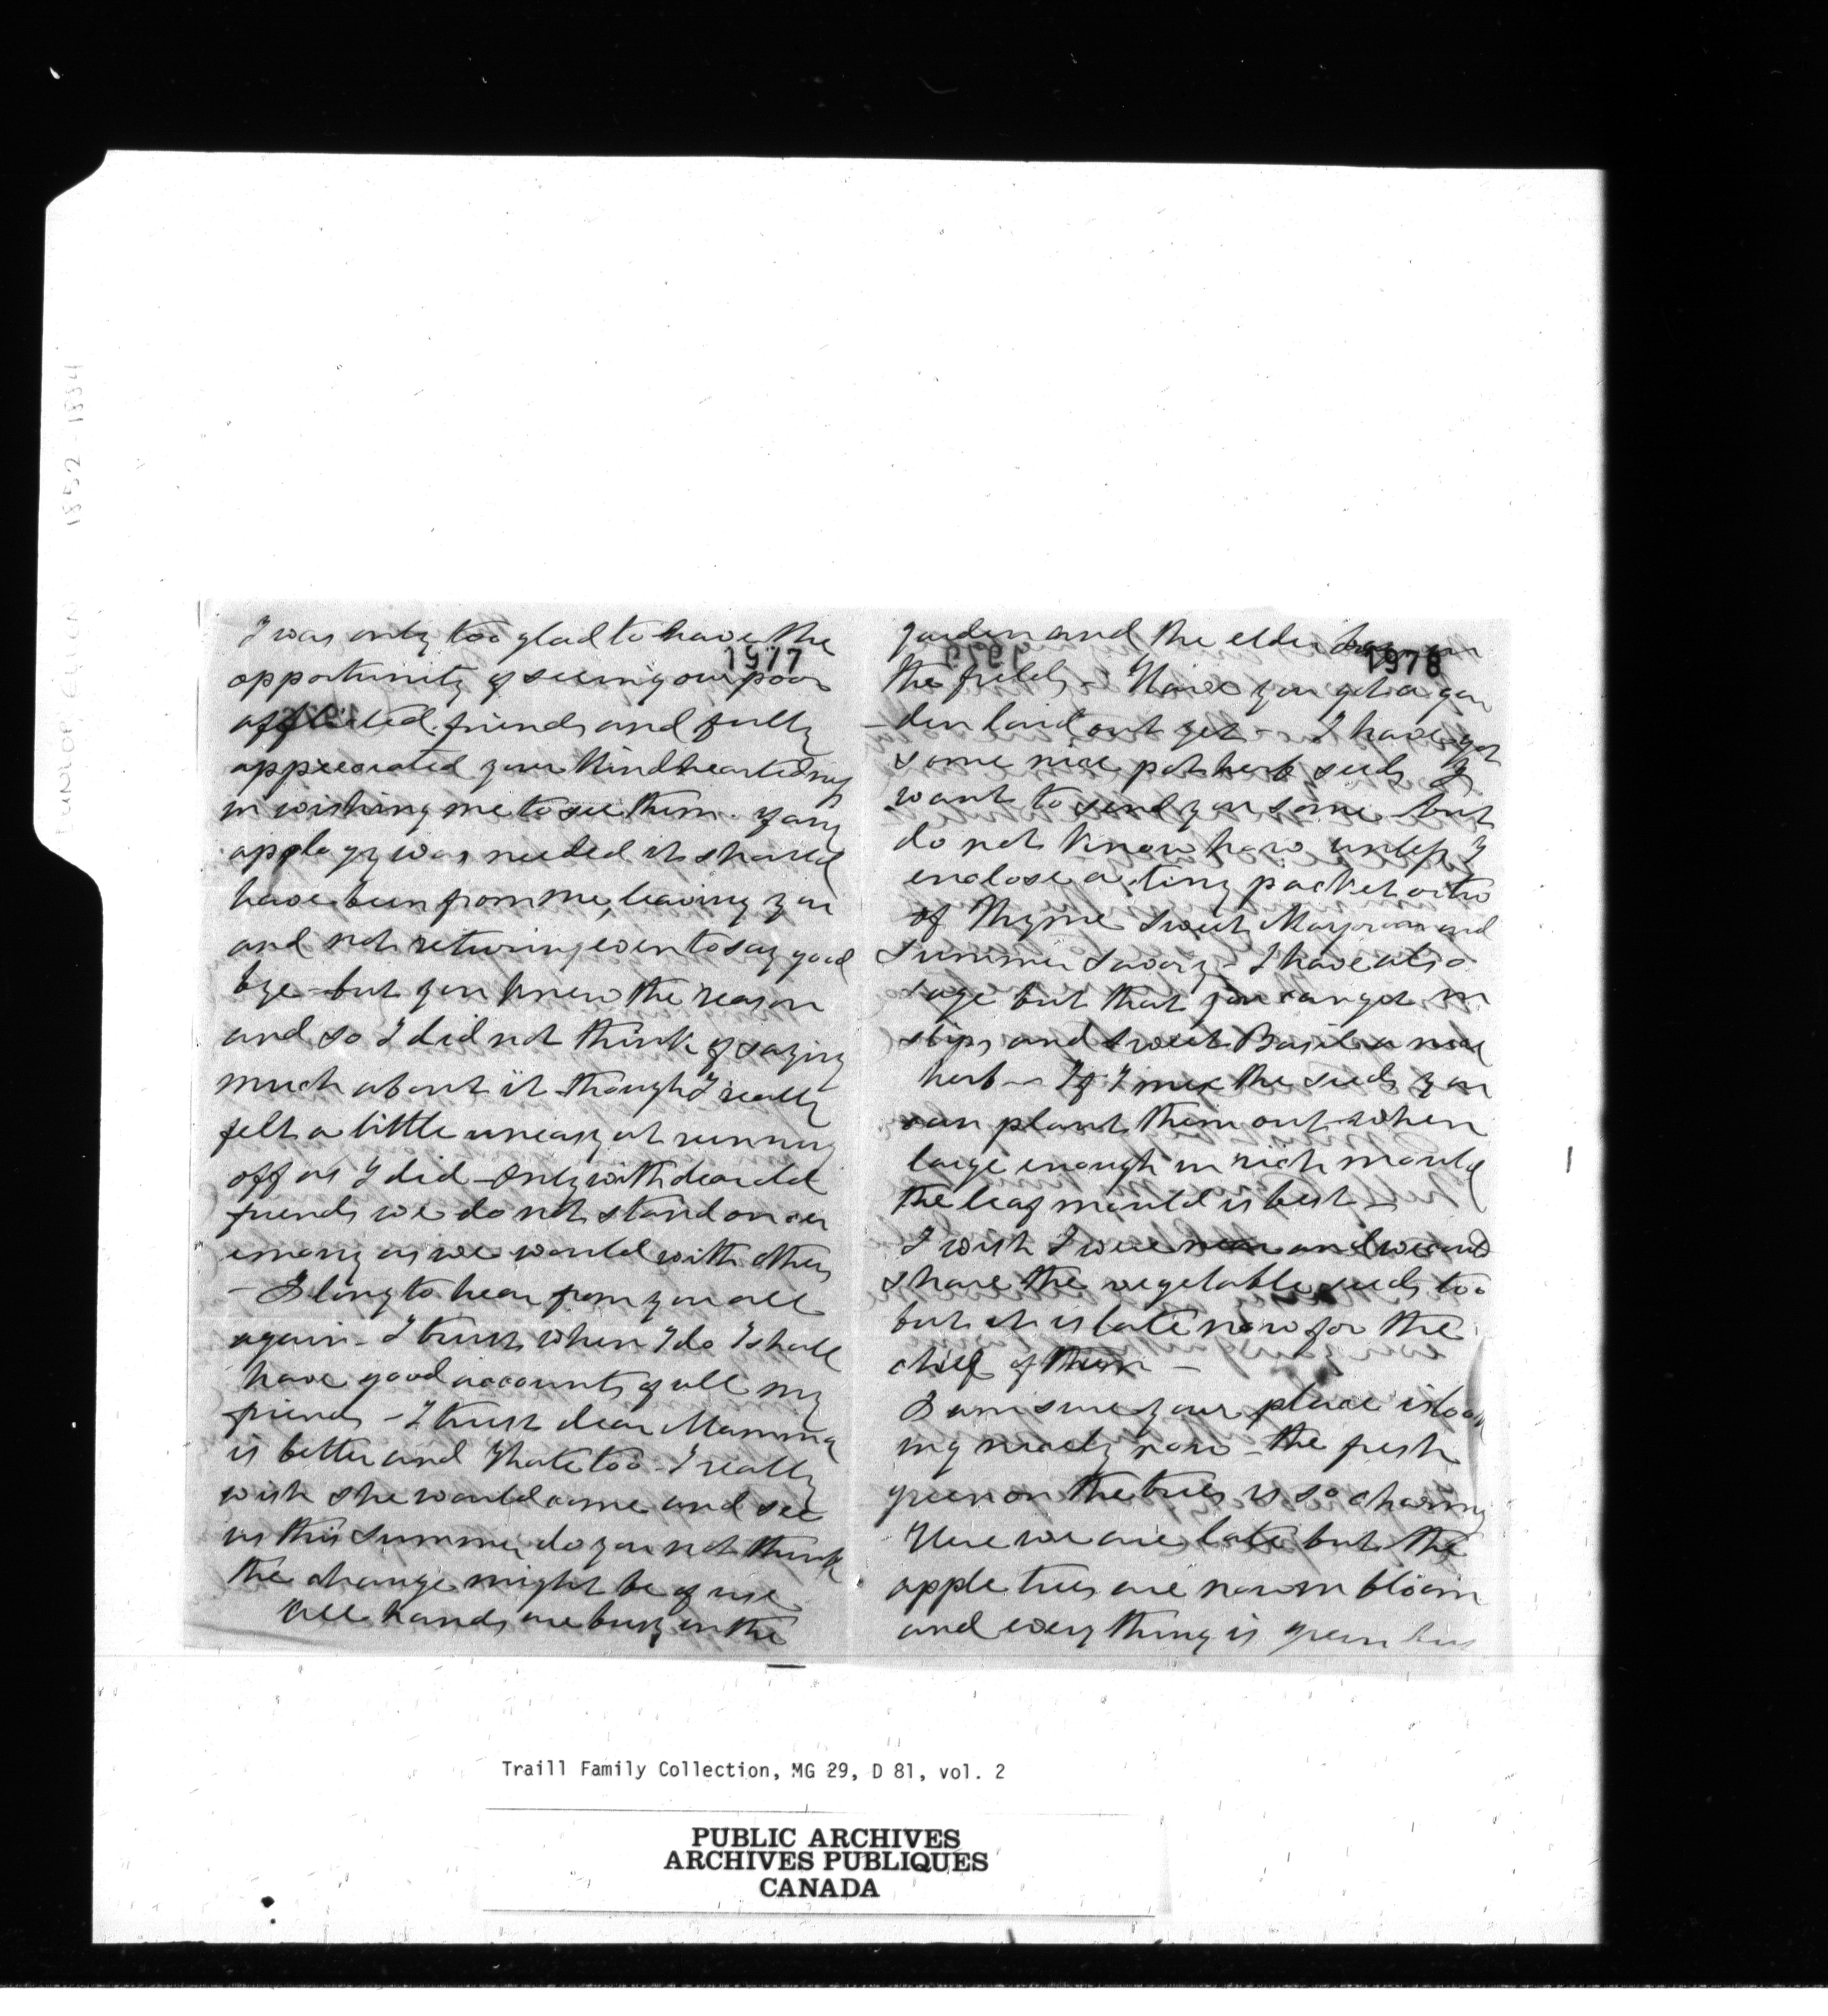 I was only too glad to have the
1977
opportunity of seeing our poor
afflicted friends and fully
appreciated your kindheartedness
in wishing me to see them. If any
apology was needed it should
have been from me, leaving you
and not returning even to say good
bye - but you knew the reason
and so I did not think of saying
much about it though I really
felt a little uneasy at running
off as I did - Only with dear old
friends we do not stand on cer
emony as we would with others
- I long to hear from you all
again - I trust when I do I shall
have good accounts of all my
friends - I trust dear Mamma
is better and Kate too - I really
wish she would come and see
us this summer do you not think
the change might be of use
All hands are busy in the
garden and the elder boys in
1978
the fields - Have you got a gar
-den laid out yet - I have got
some nice potherb seeds I
want to send you some but
do not know how unless I
enclose a tiny packet
of Thyme Sweet Marjoram and
Summer Savory - I have also
sage but that you can get in
slips and Sweet Basil a nice
herb - If I mix the seeds you
can plant them out when
large enough in rich mould
the leaf mould is best -
I wish I were near and we could
share the vegetable seeds too
but it is late now for the
chief of them -
I am sure your place is look
ing nicely now - the fresh
green on the trees is so charming
Here we are late but the
apple trees are now in bloom
and every thing is green
1852-1884
Traill Family Collection, MG 29, D 81, vol. 2
PUBLIC ARCHIVES
ARCHIVES PUBLIQUES
CANADA